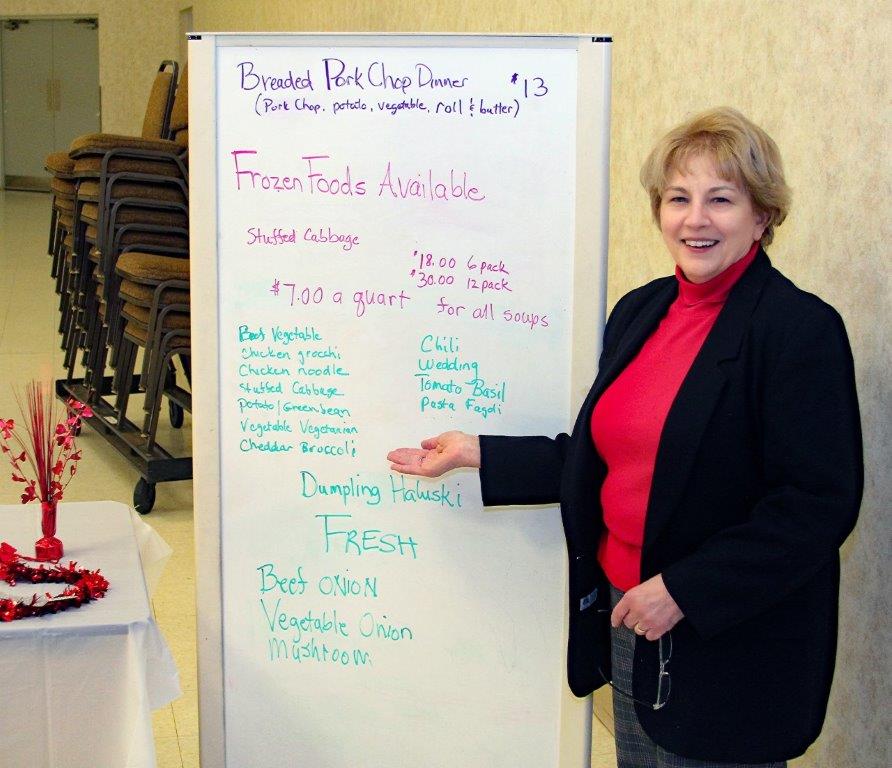 Breaded Pork Chop Dinner $13
(Pork Chop, potato, vegetable, roll & butter)
Frozen Foods Available
Stuffed Cabbage
$18.00 6 pack
$30.00 12 pack
$7.00 a quart for all soups
Beef Vegetable
Chicken grocchi
Chicken noodle
Stuffed Cabbage
Potato/Greenbean
Vegetable Vegetarian
Cheddar Broccoli
Chili
Wedding
Tomato Basil
Pasta Fagoli
Dumpling Haluski
FRESH
Beef ONION
Vegetable Onion
Mushroom